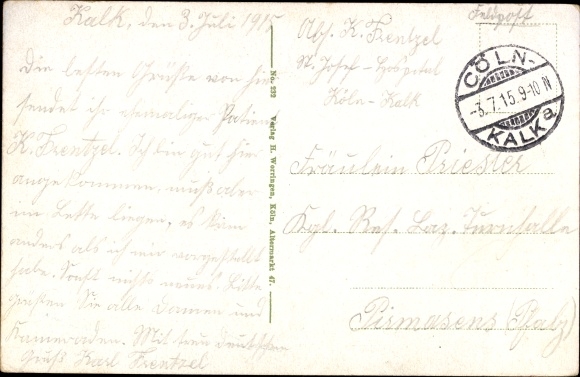 Kalk, den 3. Juli 1915
Die besten Grüße von hier
sendet ihr ehemaliger Patient
K. Frentzel. Ich bin gut hier
angekommen, muß aber
im Bette liegen, es kam
anders als ich mir vorgestellt
habe. Sonst nichts neues. Bitte
grüßen Sie alle Damen und
Kameraden. Mit treu deutschem
Gruß Karl Frentzel
No. 232 Verlag H. Worringen, Köln, Altermarkt 47.
Abs. K. Frentzel
St. Josef-Hospital
Köln-Kalk
Feldpost
CÖLN-
-3.7.15.9-10N
KALK a
Fräulein Priester
Kgl. Res. Laz. Turnhalle
Pirmasens (Pfalz)